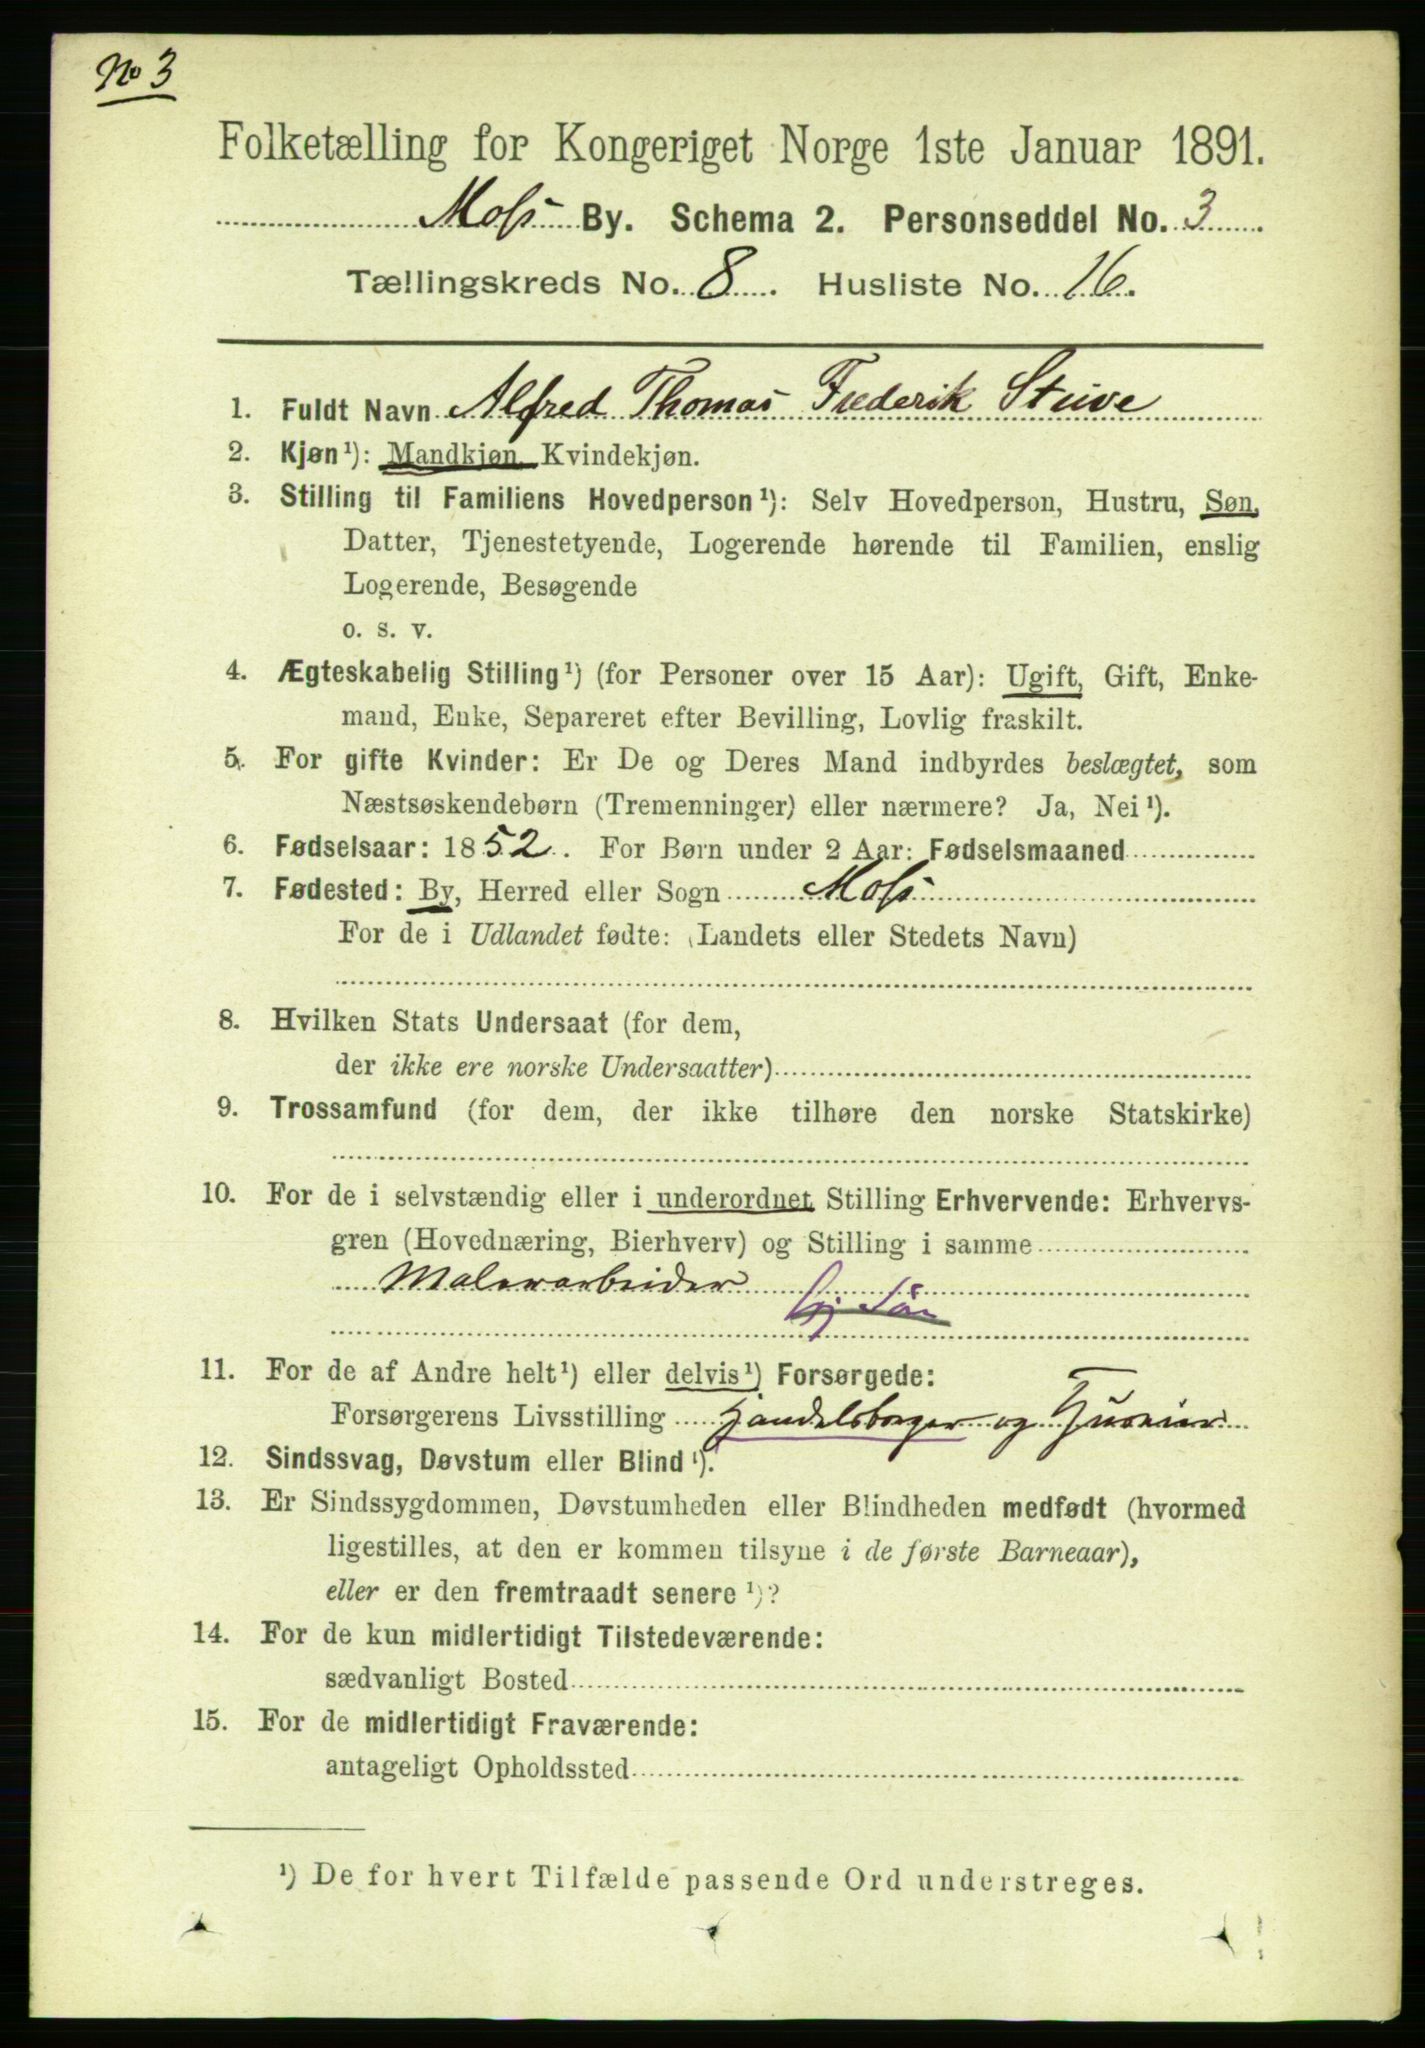 No 3
Folketælling for Kongeriget Norge 1ste Januar 1891.
Moss By. Schema 2. Personseddel No. 3
Tællingskreds No. 8. Husliste No. 16.
1. Fuldt Navn Alfred Thomas Frederik Stüve
2. Kjøn¹): Mandkjøn, Kvindekjøn.
3. Stilling til Familiens Hovedperson¹): Selv Hovedperson, Hustru, Søn,
Datter, Tjenestetyende, Logerende hørende til Familien, enslig
Logerende, Besøgende
o. s. v.
4. Ægteskabelig Stilling¹) (for Personer over 15 Aar): Ugift, Gift, Enke-
mand, Enke, Separeret efter Bevilling, Lovlig fraskilt.
5. For gifte Kvinder: Er De og Deres Mand indbyrdes beslægtet, som
Næstsøskendebørn (Tremenninger) eller nærmere? Ja, Nei¹).
6. Fødselsaar: 1852. For Børn under 2 Aar: Fødselsmaaned
7. Fødested: By, Herred eller Sogn Moss
For de i Udlandet fødte: (Landets eller Stedets Navn)
8. Hvilken Stats Undersaat (for dem,
der ikke ere norske Undersaatter)
9. Trossamfund (for dem, der ikke tilhøre den norske Statskirke)
10. For de i selvstændig eller i underordnet Stilling Erhvervende: Erhvervs-
gren (Hovednæring, Bierhverv) og Stilling i samme
Malerarbeider
11. For de af Andre helt¹) eller delvis¹) Forsørgede:
Forsørgerens Livsstilling Handelsborger og
12. Sindssvag, Døvstum eller Blind¹).
13. Er Sindssygdommen, Døvstumheden eller Blindheden medfødt (hvormed
ligestilles, at den er kommen tilsyne i de første Barneaar),
eller er den fremtraadt senere¹)?
14. For de kun midlertidigt Tilstedeværende:
sædvanligt Bosted
15. For de midlertidigt Fraværende:
antageligt Opholdssted
¹) De for hvert Tilfælde passende Ord understreges.